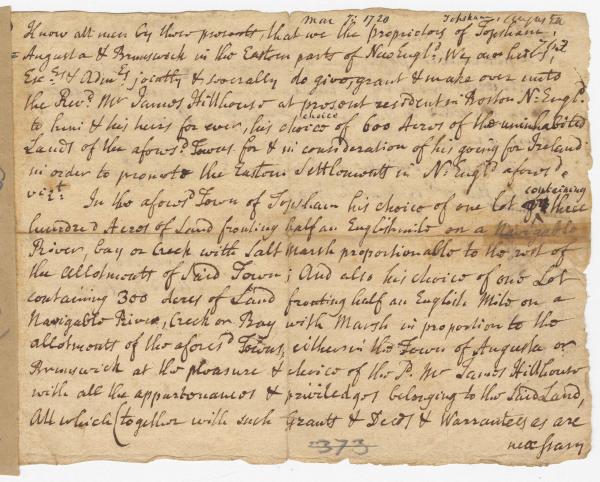 Mar 7, 1720 Topsham, Augusta
Know all men by these presents, that we the propriectors of Topsham,
Augusta & Brunswick in the Eastern parts of New Engl.d, We, our heirs,
Exc.rs & Adm.rs joratly & severally do give, grant & make over unto
the Rev.d Mr James Hillhouse at present resident in Boston N: Engl.d
to him & his heirs for ever, his choice of 600 Acres of the uninhabited
Lands of the afores.d Towns for & in consideration of his going for Ireland
in order to promote the Eastern Settlements in N: Engl.d afores.d
viz.t
In the afores.d Town of Topsham his choice of one lot containing three
hundred Acres of Land fronting half an English mile on a Navigable
River, bay or Creek with Salt Marsh proportionable to the rest of
the allotments of Said Town; And also his choice of one Lot
containing 300 Acres of Land fronting half an English Mile on a
Navigable River, Creek or Bay with Marsh in proportion to the
allotments of the afores.d Towns, either in the Town of Augusta or
Brunswick at the pleasure & choice of the s.d Mr James Hillhouse
with all the appurtenances & priviledges belonging to the Said Land,
All which (together with such Grants & Deeds & Warrantees as are
necessary
373